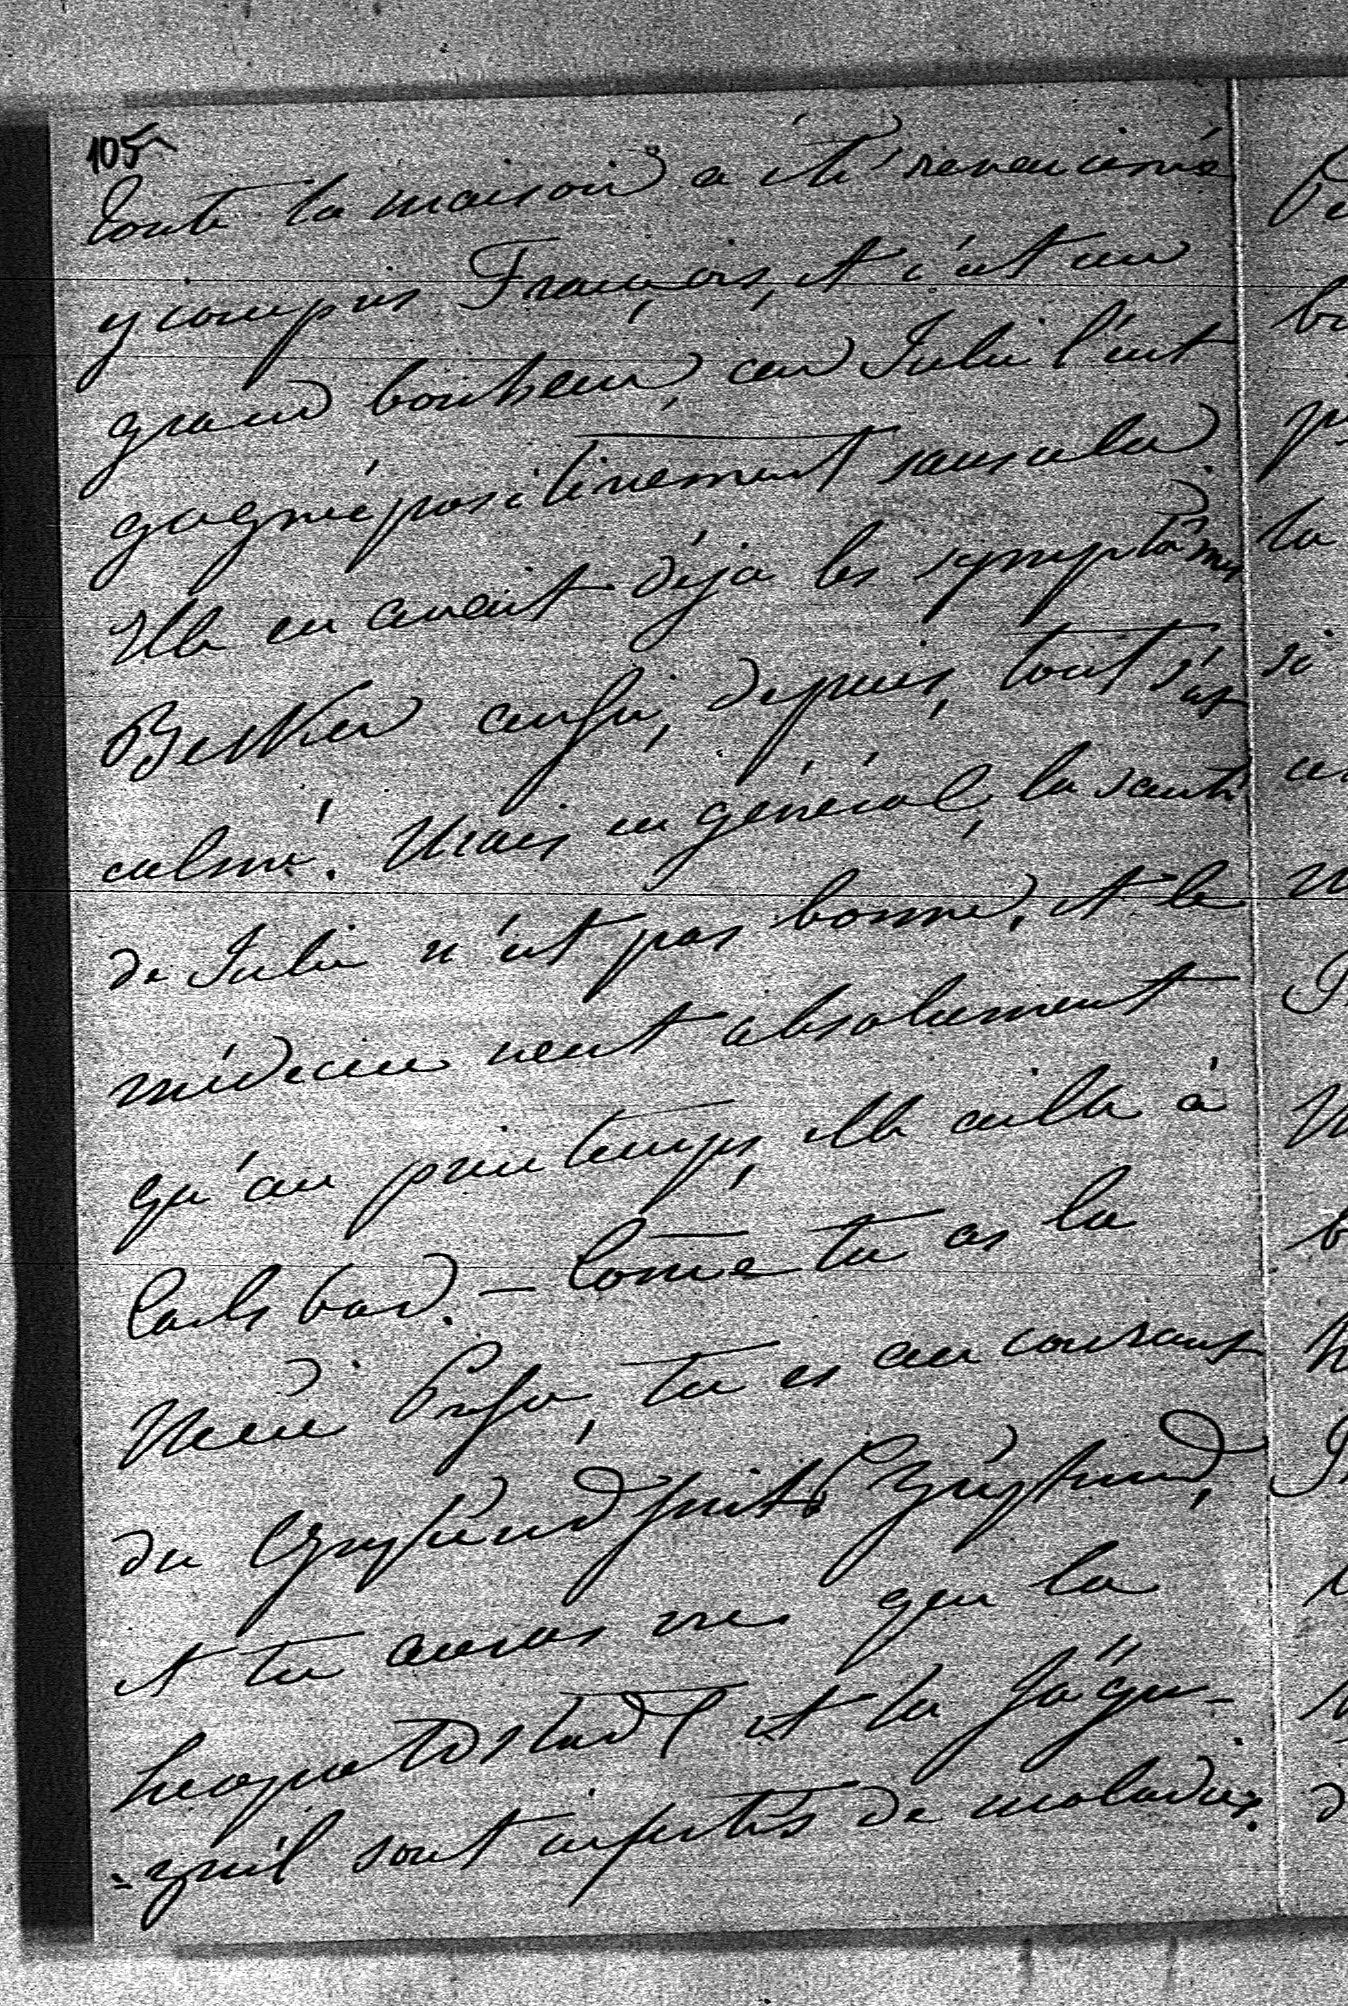 105
Toute la maison a été revaccinée
y compris François, et c'est un
grand bonheur, car Julie l'eut
gagné positivement sans cela.
Elle en avait déjà les symptômes
enfin, depuis, tout s'est
calmé. Mais en général, la santé
de Julie n'est pas bonne, et le
médecin veut absolument
qu'au printemps, elle aille à
Carlsbad. - Come tu as la
Neue Presse, tu es au courant
du
et tu auras vu que la
Leopoldstadt et la Jäger-
=zeil sont infestés de maladies.